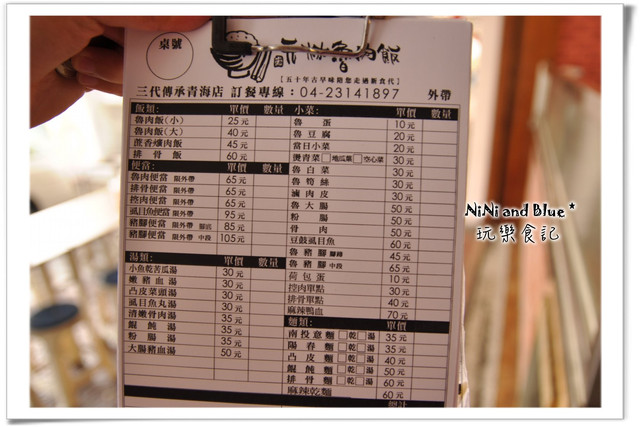 桌號
魯肉飯
【五十年古早味陪您走過新食代】
三代傳承青海店 訂餐專線：04-23141897 外帶
飯類： 單價 數量
魯肉飯(小) 25元
魯肉飯(大) 40元
蔗香爌肉飯 45元
排骨飯 60元
便當： 單價 數量
魯肉便當 限外帶 65元
排骨便當 限外帶 65元
控肉便當 限外帶 65元
虱目魚便當 限外帶 95元
豬腳便當 限外帶 腳筋 85元
豬腳便當 限外帶 中段 105元
湯類： 單價 數量
小魚乾苦瓜湯 30元
嫩豬血湯 30元
凸皮菜頭湯 30元
虱目魚丸湯 30元
清嫩骨肉湯 35元
餛飩湯 35元
粉腸湯 35元
大腸豬血湯 50元
小菜： 單價 數量
魯蛋 10元
魯豆腐 20元
當日小菜 20元
燙青菜 □地瓜葉 □空心菜 30元
魯白菜 30元
魯筍絲 30元
滷肉皮 30元
魯大腸 50元
粉腸 50元
骨肉 50元
豆鼓虱目魚 60元
魯豬腳 45元
魯豬腳 中段 65元
荷包蛋 10元
控肉單點 30元
排骨單點 40元
麻辣鴨血 70元
麵類： 單價
南投意麵□乾□湯 35元
陽春麵□乾□湯 35元
凸皮麵□乾□湯 40元
餛飩麵□乾□湯 50元
排骨麵□乾□湯 60元
麻辣乾麵 60元
總計
NiNi and Blue*
玩樂食記